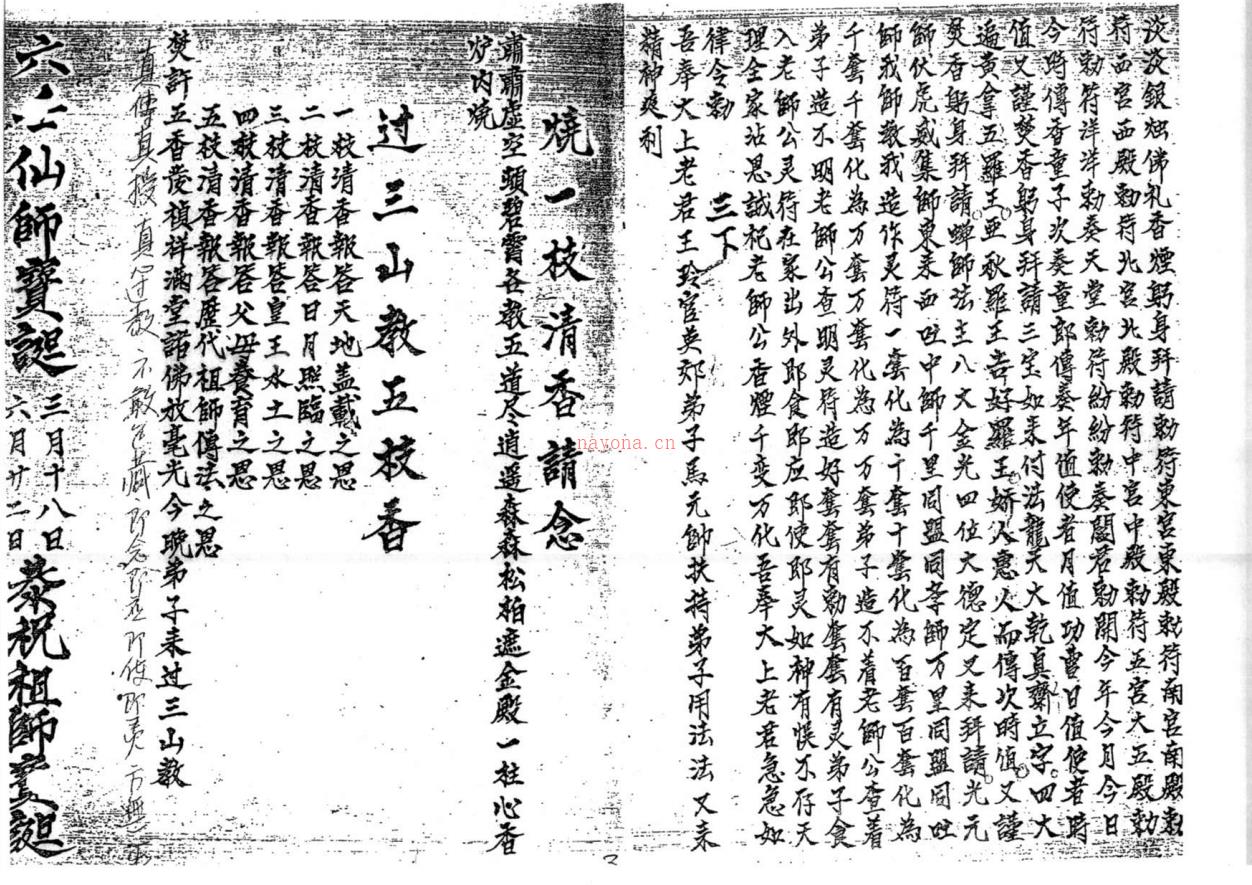 淡淡銀燭佛礼香煙躬身拜請勅符東宮東殿勅符南宮南殿勅
符西宮西殿勅符北宮北殿勅符中宮中殿勅符五宮大五殿勅
符勅符洋洋勅奏天堂勅符紛紛勅奏閻君勅開今年今月今日
今時傳香童子次奏童郎傳奏年值使者月值功曹日值使者時
值又謹焚香躬身拜請三宝如来付法龍天大乾真齋立字四大
遍黄拿五羅王亜秋羅王吉好羅王嬌人惠人而傳次時值又謹
焚香躬身拜請蟬師法主八丈金光四位大德定又来拜請光元
師伏虎威集師東来西吐中師千里同盟同李師万里同盟同吐
師我師教我造作灵符一套化為十套十套化為百套百套化為
千套千套化為万套万套化為万万套弟子造不着老師公查着
弟子造不明老師公查明灵符造好套套有勅套套有灵弟子食
入老師公灵符在家出外即食即应即使即灵如神有悮不存天
理全家沾恩誠祀老師公香煙千变万化吾奉大上老君急急如
律令勅
三下
吾奉大上老君王玲官英郊弟子馬元帥扶持弟子用法法又来
精神爽利
燒一枝清香請念
肅肅虛空頭碧霄各教五道尽逍遥森森松柏遮金殿一柱心香
炉内燒
过三山教五枝香
一枝清香報答天地盖載之恩
二枝清香報答日月照臨之恩
三枝清香報答皇王水土之恩
四枝清香報答父母養育之恩
五枝清香報答歷代祖師傳法之恩
焚許五香發禎祥滿堂諸佛放毫光今晚弟子来过三山教
真傳真授真字教不敢 藏即念即应即使即灵方
六壬仙師寶誕
三月十八日
六月廿二日
恭祝祖師寶誕
nayona.cn